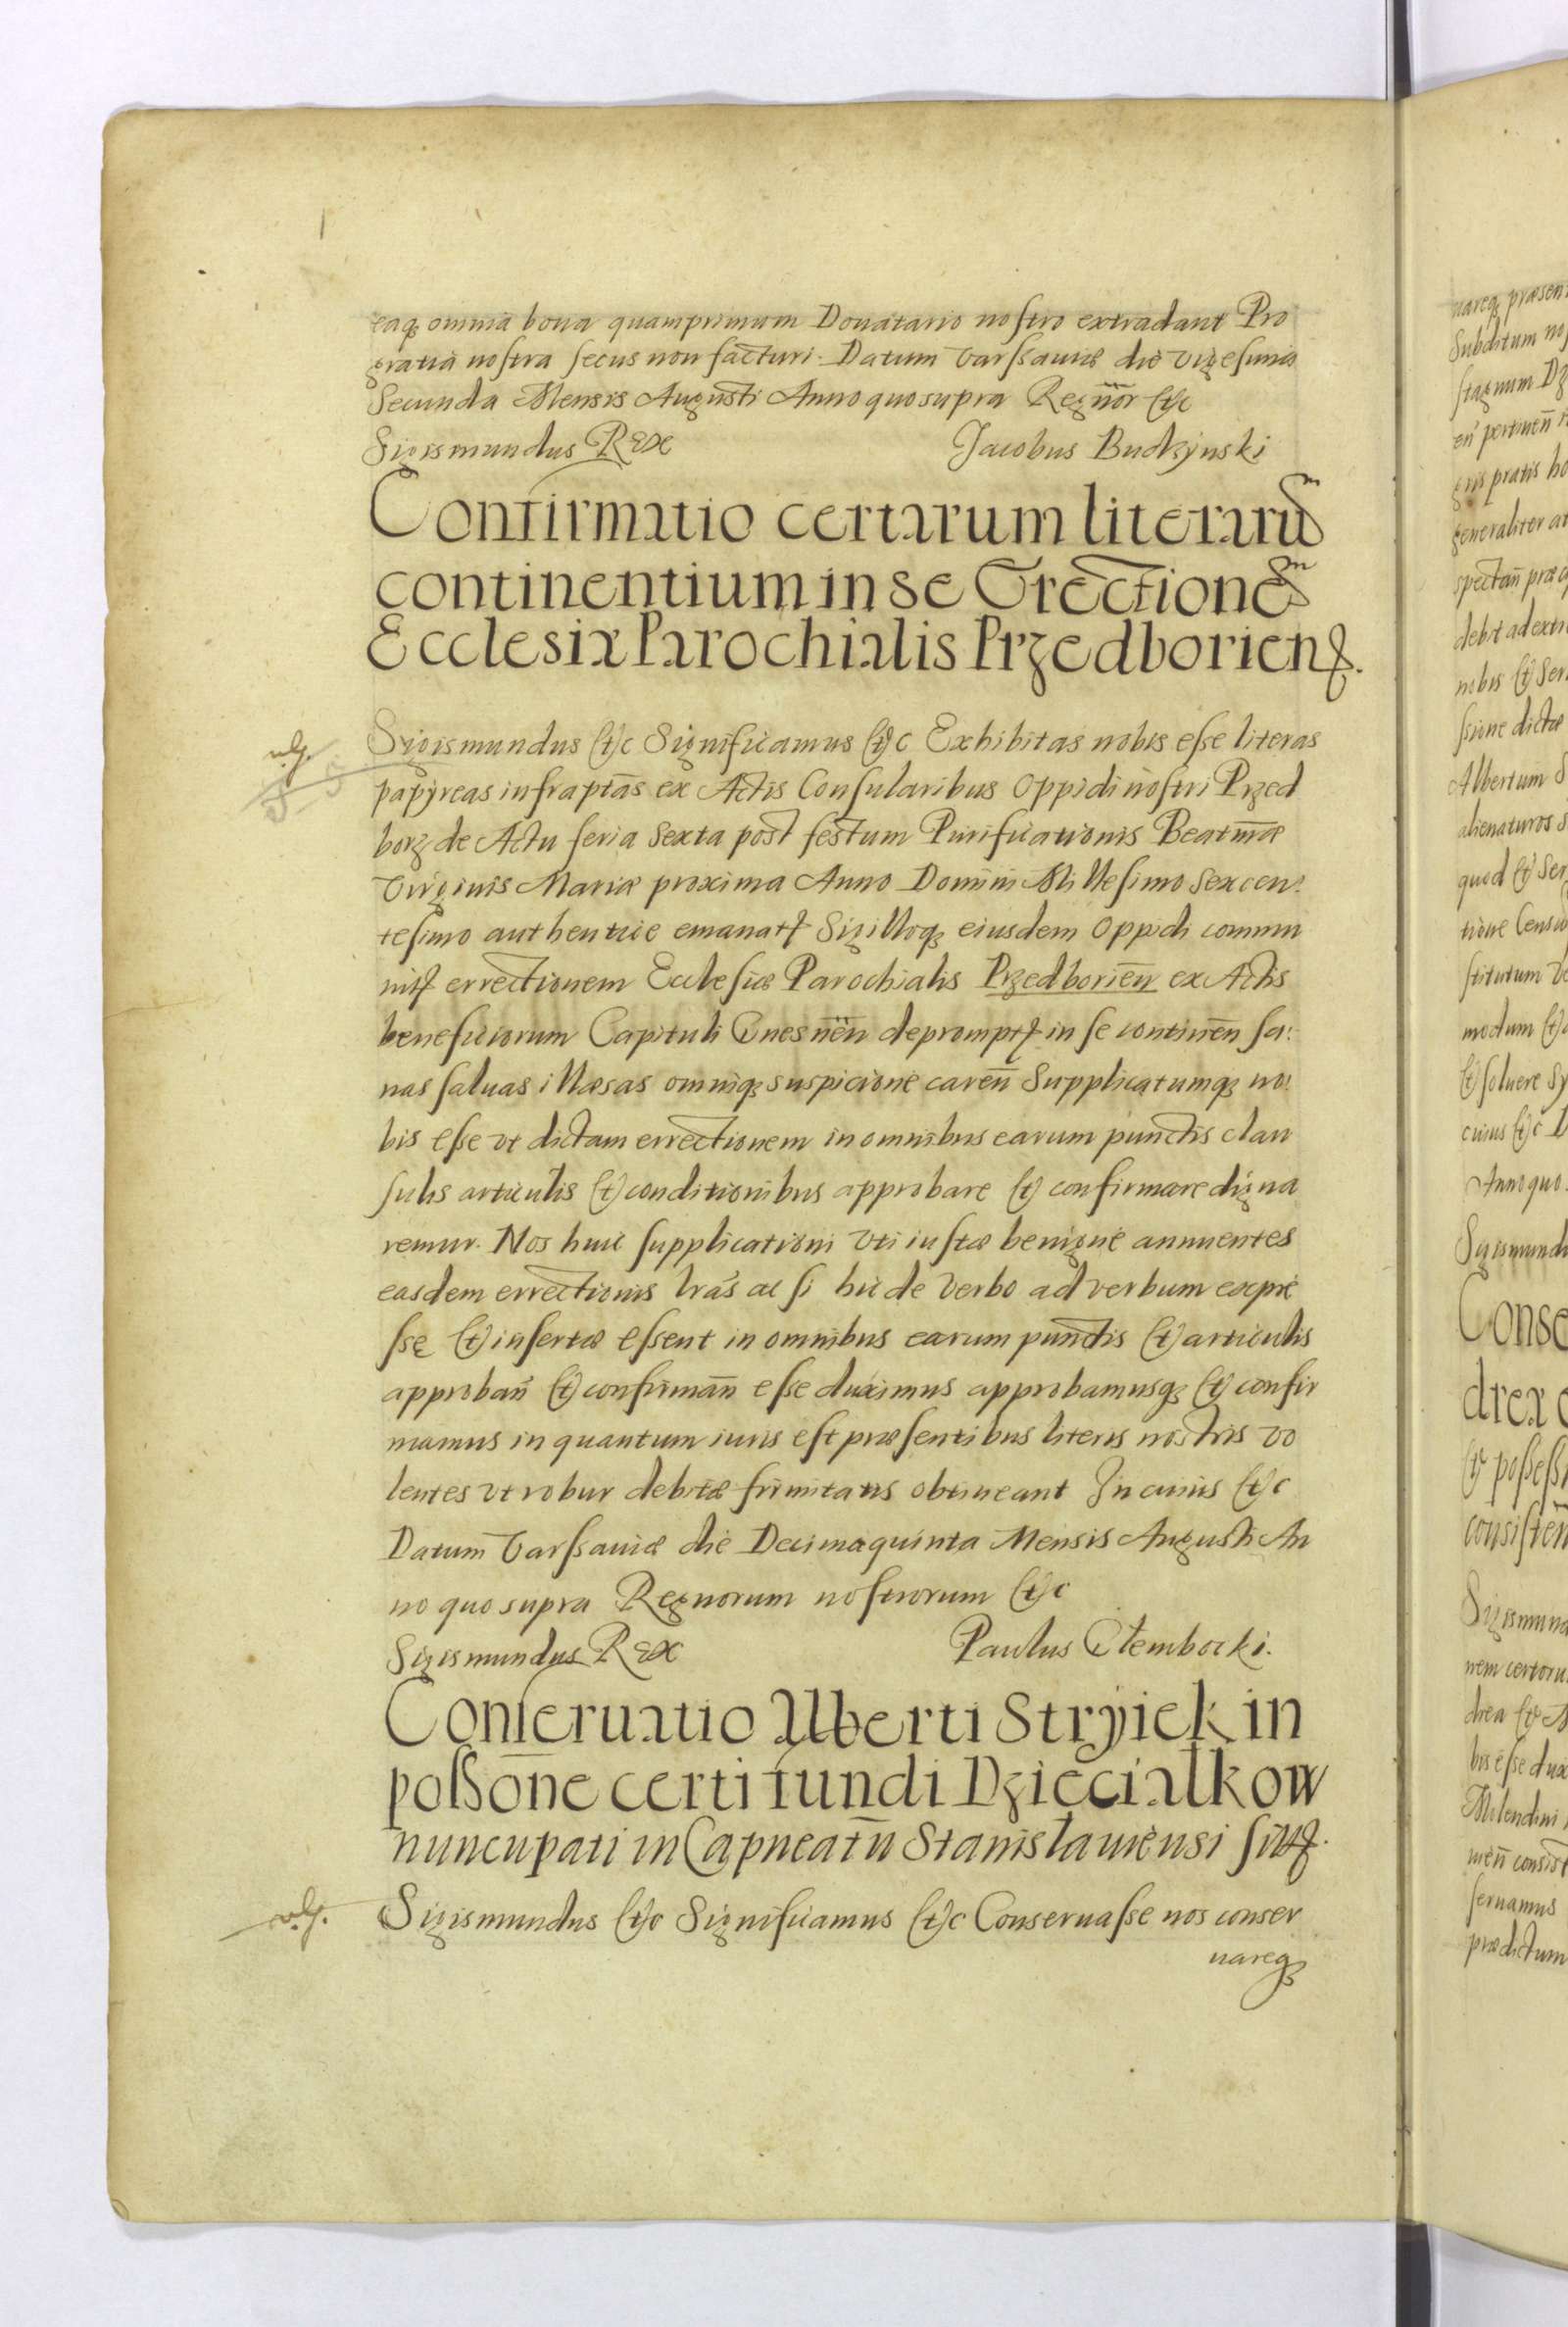 eaq₃ omnia bona quamprimum Donatario nostro extradant Pro
gratia nostra secus non facturi. Datum Varssauiæ die Vigesima
Secunda Mensis Augusti Anno quo supra Regnōr &c
Sigismundus Rex Jacobus Budzÿnski
Confirmatio certarum literarū
continentium in se Erectionē
Ecclesiæ Parochialis Przedborien̄.
Sigismundus &c Significamus &c Exhibitas nobis esse literas
papÿreas infraptas ex Actis Consularibus Oppidi nostri Przed
borz de Actu feria Sexta post festum Purificationis Beatmæ
Virginis Mariæ proxima Anno Domini Millesimo Sexcen:
tesimo authentice emanat Sigilloq₃ eiusdem Oppidi commu
nit errectionem Ecclesiæ Parochialis Przedborien̄ ex Actis
beneficiorum Capituli Gnesnen̄ deprompt in se continen̄ sa:
nas saluas illæsas omniq₃ suspicione caren̄ Supplicatumq₃ no:
bis esse vt dictam errectionem in omnibus earum punctis clau
sulis articulis & conditionibus approbare & confirmare digna
remur. Nos huic supplicationi vti iustæ benigne annuentes
easdem errectionis lras ac si hic de verbo ad verbum expre
ssę & insertæ essent in omnibus earum punctis & articulis
approban̄ & confirman̄ esse duximus approbamusq₃ & confir
mamus in quantum iuris est præsentibus literis nostris vo
lentes vt robur debitæ firmitatis obtineant In cuius &c
Datum Varssauiæ die Decima quinta Mensis Augusti An
no quo supra Regnorum nostrorum &c
Sigismundus Rex Paulus Glembocki.
Conseruatio Alberti Strÿiek in
possone certi fundi Dzieciałkow
nuncupati in Capneatū Stanisłauiensi sit.
Sigismundus &c Significamus &c Conseruasse nos conser
uareq₃